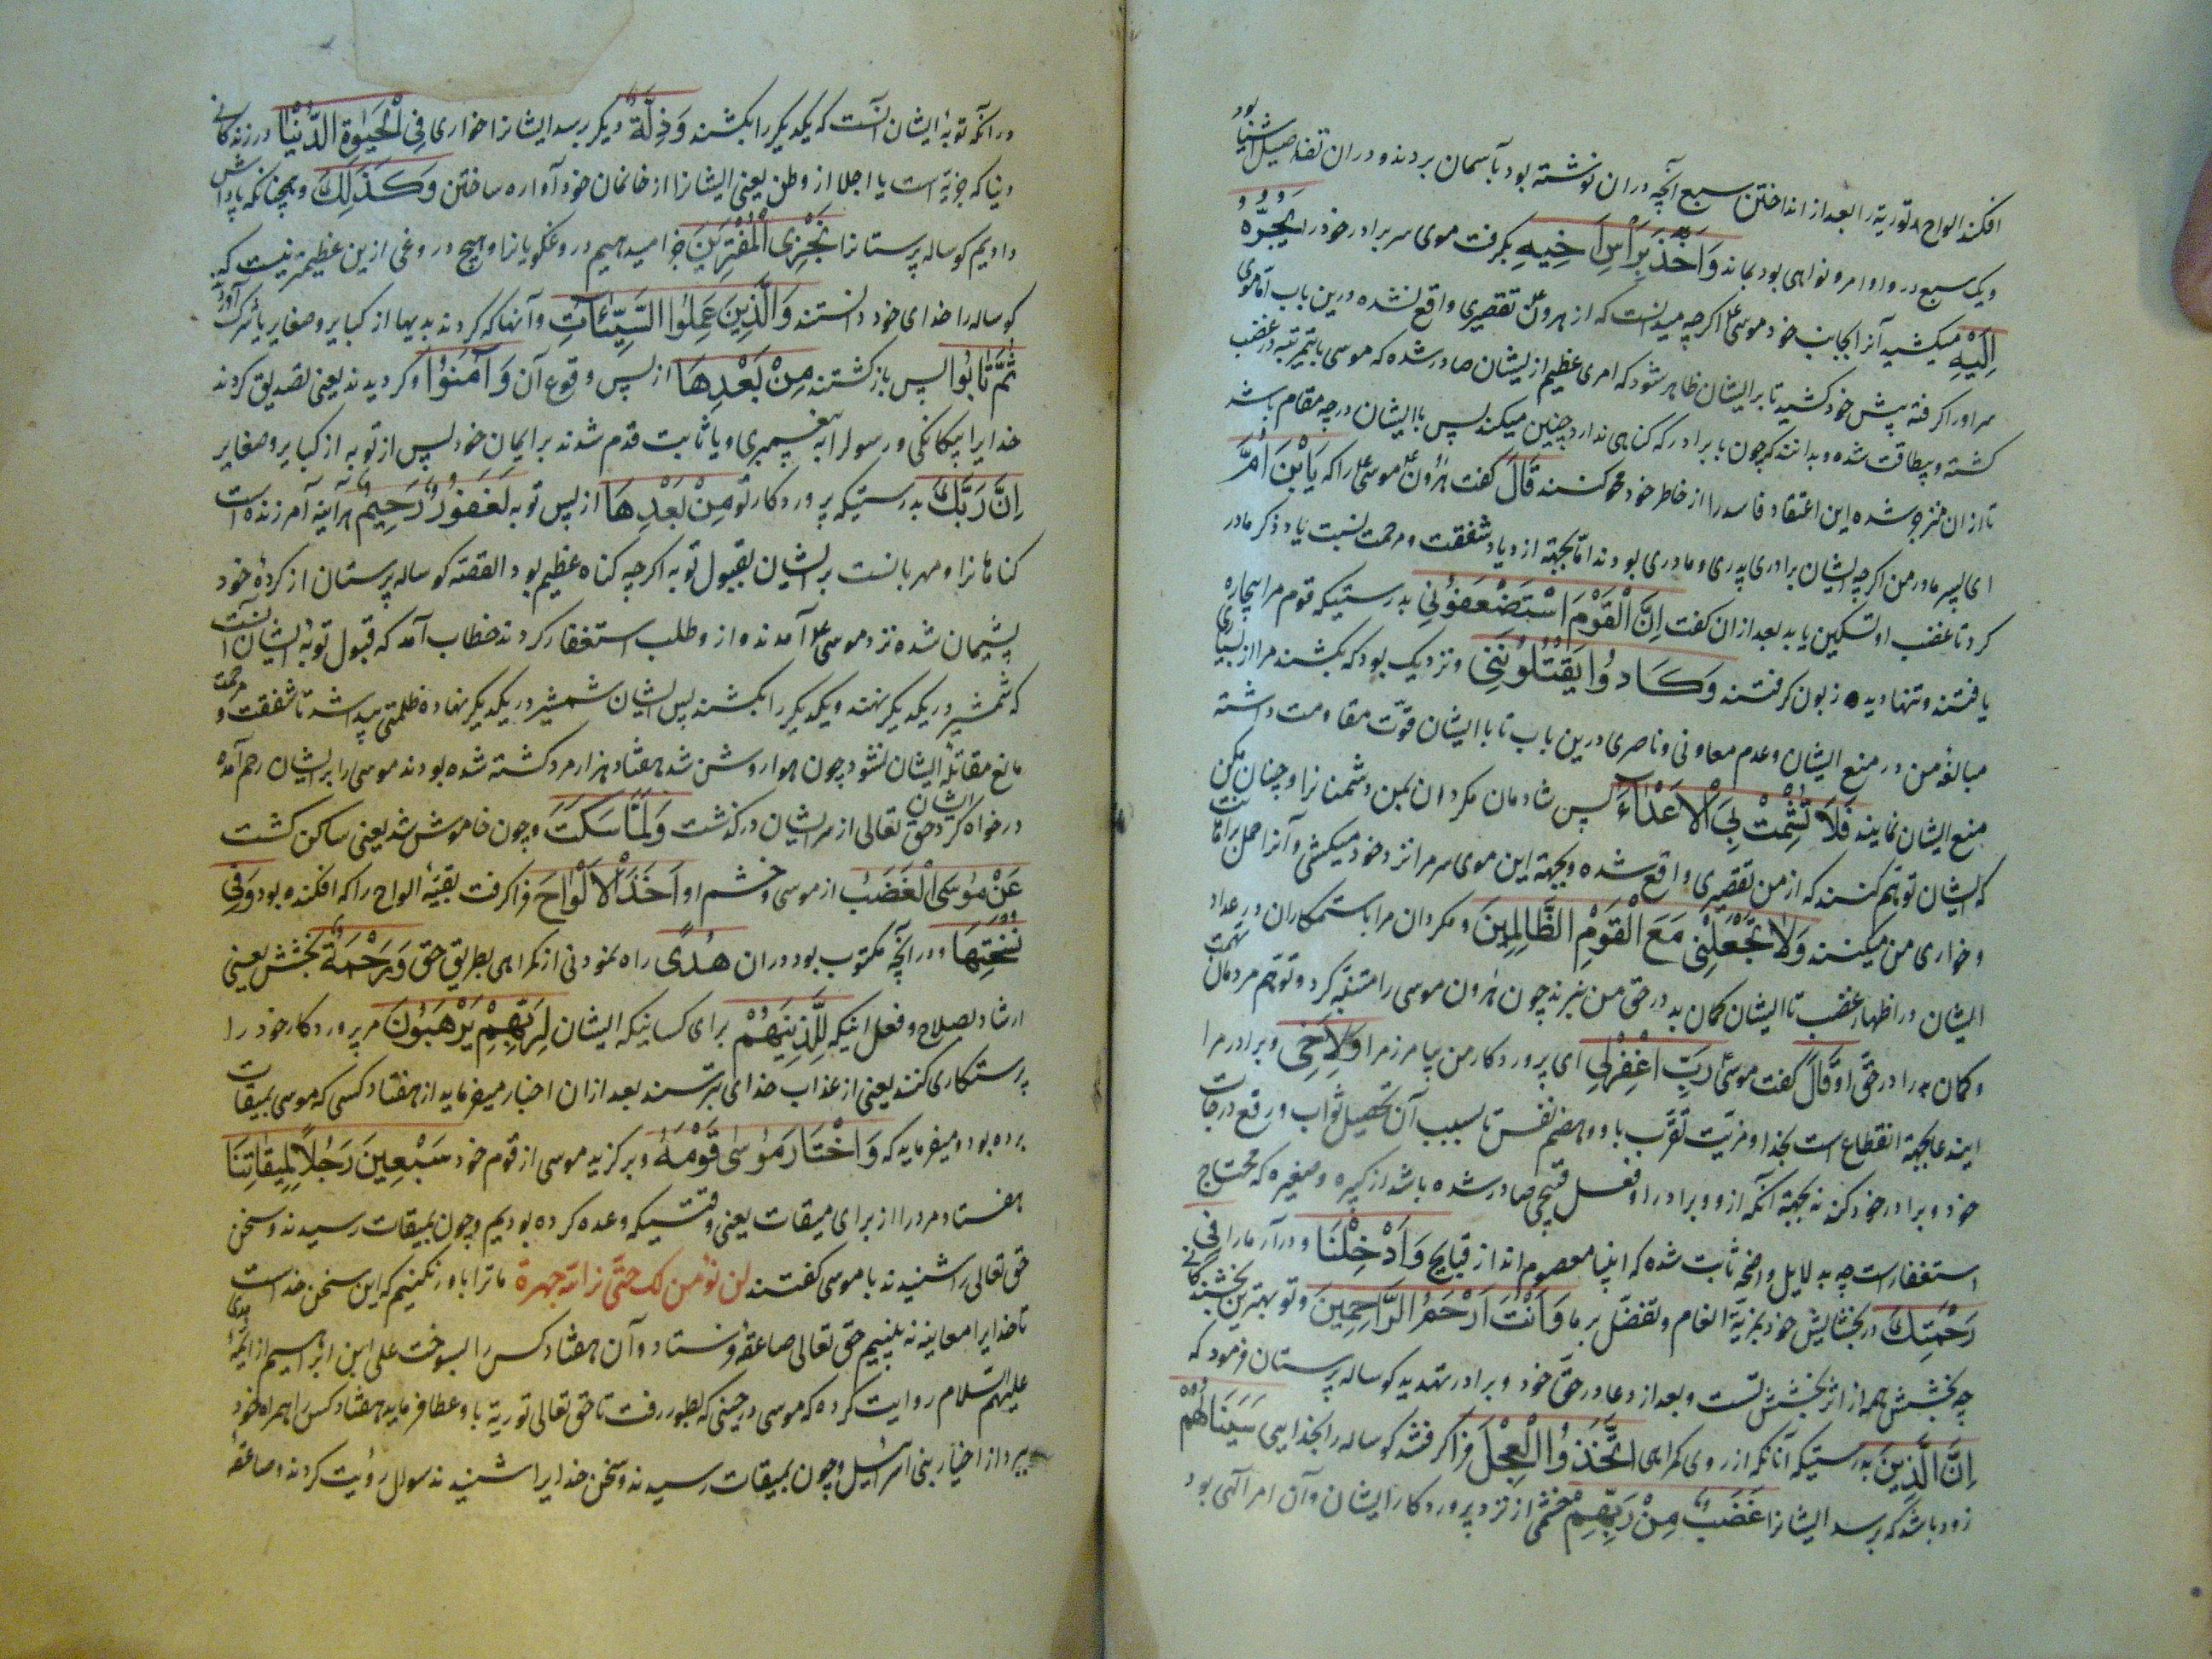 افکند الواح توریة را بعد از انداختن سبع آنچه دران نوشته بود بآسمان بردند و دران تفاصیل اشیا بود
و یک سبع درو اوامر و نواهی بود بماند وَاَخَذَ بِرَاْسِ اَخِیهِ بکرفت موسی سر برادر خود را یَجُرُّهُ
اِلَیْهِ میکشید آنرا بجانب خود موسی ع اکرچه میدانست که از هرون ع تقصیری واقع نشده درین باب اما موی
سر او را کرفته پیش خود کشید تا بر ایشان ظاهر شود که امری عظیم از ایشان صادر شده که موسی باین مرتبه در غضب
کشته و بیطاقت شده و بدانند که چون با برادر که کناهی ندارد چنین میکند پس با ایشان درچه مقام باشد
تا ازان منزجر شده این اعتقاد فاسد را از خاطر خود محو کنند قَالَ کفت هرون ع موسی ع را که یَابْنَ اُمَّ
ای پسر مادر من اکرچه ایشان برادری پدری و مادری بودند اما بجهة ازدیاد شفقت و مرحمت نسبت یاد ذکر مادر
کرد تا غضب او تسکین یابد بعد ازان کفت اِنَّ الْقَوْمَ اسْتَضْعَفُونِی بدرستیکه قوم مرا بیچاره
یافتند و تنها دیده زبون کرفتند وَکَادُوا یَقْتُلُونَنِی و نزدیک بود که بکشند مرا از بسیاری
مبالغه من در منع ایشان و عدم معاونی و ناصری درین باب تا با ایشان قوّت مقاومت داشته
منع ایشان نمایند فَلَا تُشْمِتْ بِیَ الْاَعْدَاءَ پس شادمان مکردان بمن دشمنانرا و چنان مکن
که ایشان توهم کنند که از من تقصیری واقع شده و بجهة این موی سر مرا نزد خود میکشی و آنرا حمل بر اهانت
و خواری من میکنند وَلَا تَجْعَلْنِی مَعَ الْقَوْمِ الظَّالِمِینَ و مکردان مرا با ستمکاران در عداد
ایشان در اظهار غضب تا ایشان کمان بد در حق من نبرند چون هرون موسی را متنبّه کرد و توهم مردمان تهمت
و کمان بد را در حق او قَالَ کفت موسی ع رَبِّ اغْفِرْلِی ای پروردکار من بیامرز مرا وَلِاَخِی و برادر مرا
این دعا بجهة انقطاع است بخدا و مزیّت تقرّب باو و هضم نفس تا بسبب آن تحصیل ثواب و رفع درجات
خود و برادر خود کند نه بجهة آنکه ازو و برادر او فعل قبیحی صادر شده باشد از کبیره و صغیره که محتاج
استغفار است چه بدلایل واضحه ثابت شده که انبیا معصوم‌اند از قبایح وَاَدْخِلْنَا و درآر ما را فِی
رَحْمَتِکَ در بخشایش خود بمزیّة انعام و تفضّل بر ما وَاَنْتَ اَرْحَمُ الرَّاحِمِینَ و تو بهترین بخشندکانی
چه بخشش همه از اثر بخشش تست و بعد از دعا در حق خود و برادر تهدید کوساله پرستان فرمود که
اِنَّ الَّذِینَ بدرستیکه آنانکه از روی کمراهی اتَّخَذُوا الْعِجْلَ فراکرفتند کوساله را بخدایی سَیَنَالُهُمْ
زود باشد که برسد ایشانرا غَضَبٌ مِنْ رَبِّهِمْ خشمی از نزد پروردکار ایشان و آن امر الهی بود
درانکه توبۀ ایشان آنست که یکدیکر را بکشند وَذِلَّةٌ دیکر برسد ایشانرا خواری فِی الْحَیٰوةِ الدُّنْیَا در زندکانی
دنیا که جزیه است یا اجلا از وطن یعنی ایشانرا از خانمان خود آواره ساختن وَکَذٰلِکَ و همچنانکه پاداش
دادیم کوساله پرستانرا نَجْزِی الْمُفْتَرِینَ جزا میدهیم دروغکویانرا و هیچ دروغی ازین عظیمتر نیست که
کوساله را خدای خود دانستند وَالَّذِینَ عَمِلُوا السَّیِّئَاتِ و آنها که کردند بدیها از کبایر و صغایر یا شرک آورد
ثُمَّ تَابُوا پس بازکشتند مِنْ بَعْدِهَا از پس وقوع آن وَاٰمَنُوا و کردیدند یعنی تصدیق کردند
خدایرا بیکانکی و رسول را به پیغمبری و یا ثابت قدم شدند بر ایمان خود پس از توبه از کبایر و صغایر
اِنَّ رَبَّکَ بدرستیکه پروردکار تو مِنْ بَعْدِهَا از پس توبه لَغَفُورٌ رَحِیمٌ هر آینه آمرزنده است
کناهانرا و مهربانست بر ایشان بقبول توبه اکرچه کناه عظیم بود القصّه کوساله پرستان از کردۀ خود
پشیمان شده نزد موسی ع آمدند و ازو طلب استغفار کردند خطاب آمد که قبول توبۀ ایشان آنست
که شمشیر در یکدیکر نهند و یکدیکر را بکشند پس ایشان شمشیر در یکدیکر نهاده ظلمتی پیدا شد تا شفقت و مرحمت
مانع مقاتلۀ ایشان نشود چون هوا روشن شد هفتاد هزار مرد کشته شده بودند موسی را بر ایشان رحم آمده
درخواه کرد حق تعالی از سر ایشان درکذشت وَلَمَّا سَکَتَ و چون خاموش شد یعنی ساکن کشت
عَنْ مُوسَی الْغَضَبُ از موسی خشم او اَخَذَ الْاَلْوَاحَ فراکرفت بقیّۀ الواح را که افکنده بود وَفِی
نُسْخَتِهَا و در آنچه مکتوب بود دران هُدًی راه نمودنی از کمراهی بطریق حق وَرَحْمَةٌ بخشش یعنی
ارشاد بصلاح و فعل نیک لِلَّذِینَ هُمْ برای کسانیکه ایشان لِرَبِّهِمْ یَرْهَبُونَ مر پروردکار خود را
پرستکاری کنند یعنی از عذاب خدای بترسند بعد ازان اخبار میفرماید از هفتاد کسی که موسی بمیقات
برده بود و میفرماید که وَاخْتَارَ مُوسٰی قَوْمَهُ و برکزید موسی از قوم خود سَبْعِینَ رَجُلًا لِمِیقَاتِنَا
هفتاد مرد را از برای میقات یعنی وقتیکه وعده کرده بودیم و چون بمیقات رسیدند و سخن
حق تعالی را شنیدند با موسی کفتند لن نؤمن لک حتّی نری الله جهرة ما ترا باور نکنیم که این سخن خداست
تا خدایرا معاینه نه بینیم حق تعالی صاعقه فرستاد و آن هفتاد کس را بسوخت علی ابن ابراهیم از ائمۀ هدی
علیهم السلام روایت کرده که موسی در حینی که بطور رفت تا حق تعالی توریة باو عطا فرماید هفتاد کس را همراه خود
ببرد از اخیار بنی اسرائیل و چون بمیقات رسیدند و سخن خدایرا شنیدند سوال رؤیت کردند و صاعقه